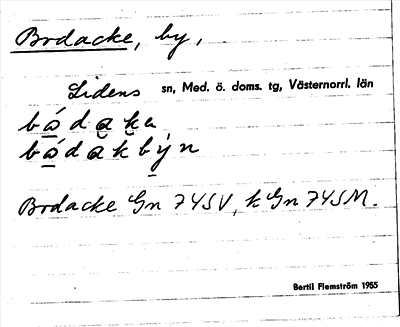 Bodacke, by,
Lidens sn, Med. ö. doms. tg, Västernorrl. län
bó̠da̠ka
bó̠da̠kbý̠n
Bodacke Gn 74SV, k Gn 74SM.
Bertil Flemström 1955